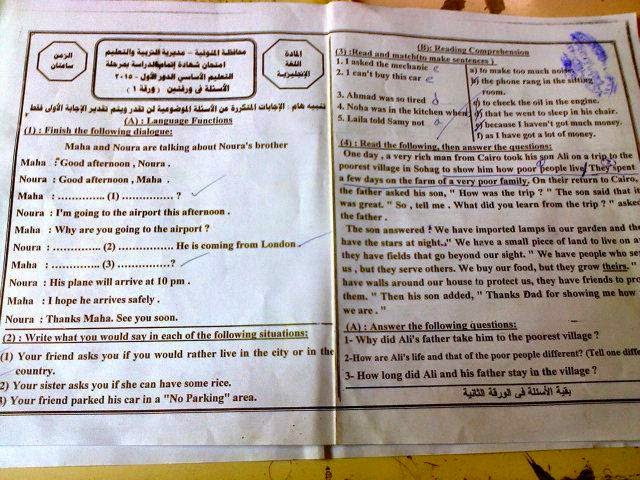 الزمن
ساعتان
محافظة المنوفية - مديرية التربية والتعليم
امتحان شهادة إتمام الدراسة بمرحلة
التعليم الأساسي الدور الأول - ٢٠١٥
الأسئلة فى ورقتين ( ورقة ١ )
المادة
اللغة
الإنجليزية
تنبيه هام: الإجابات المتكررة عن الأسئلة الموضوعية لن تقدر ويتم تقدير الإجابة الأولى فقط
(A) : Language Functions
(1) : Finish the following dialogue:
Maha and Noura are talking about Noura's brother
Maha : Good afternoon , Noura .
Noura : Good afternoon , Maha .
Maha : .............. (1) .............. ?
Noura : I'm going to the airport this afternoon .
Maha : Why are you going to the airport ?
Noura : .............. (2) .............. He is coming from London .
Maha : .............. (3) ..............?
Noura : His plane will arrive at 10 pm .
Maha : I hope he arrives safely .
Noura : Thanks Maha. See you soon.
(2) : Write what you would say in each of the following situations:
(1) Your friend asks you if you would rather live in the city or in the
country.
2) Your sister asks you if she can have some rice.
3) Your friend parked his car in a "No Parking" area.
(B): Reading Comprehension
(3) :Read and match(to make sentences )
1. I asked the mechanic c
2. 1 can't buy this car e
3. Ahmad was so tired d
4. Noha was in the kitchen when
5. Laila told Samy not
a) to make too much noise.
b) the phone rang in the sitting
room.
c) to check the oil in the engine.
d) that he went to sleep in his chair.
e) because I haven't got much money.
f) as I have got a lot of money.
(4) : Read the following, then answer the questions:
One day , a very rich man from Cairo took his son Ali on a trip to the
poorest village in Sohag to show him how poor people live. They spent
a few days on the farm of a very poor family. On their return to Cairo,
the father asked his son, " How was the trip ? " The son said that it
was great. " So , tell me . What did you learn from the trip ? " asked
the father .
The son answered " We have imported lamps in our garden and they
have the stars at night.. " We have a small piece of land to live on and
they have fields that go beyond our sight. " We have people who serve
us , but they serve others. We buy our food, but they grow theirs. "
have walls around our house to protect us, they have friends to protect
them. " Then his son added, " Thanks Dad for showing me how
we are . "
(A) : Answer the following questions:
1- Why did Ali's father take him to the poorest village ?
2-How are Ali's life and that of the poor people different? (Tell one
3- How long did Ali and his father stay in the village ?
بقية الأسئلة فى الورقة الثانية